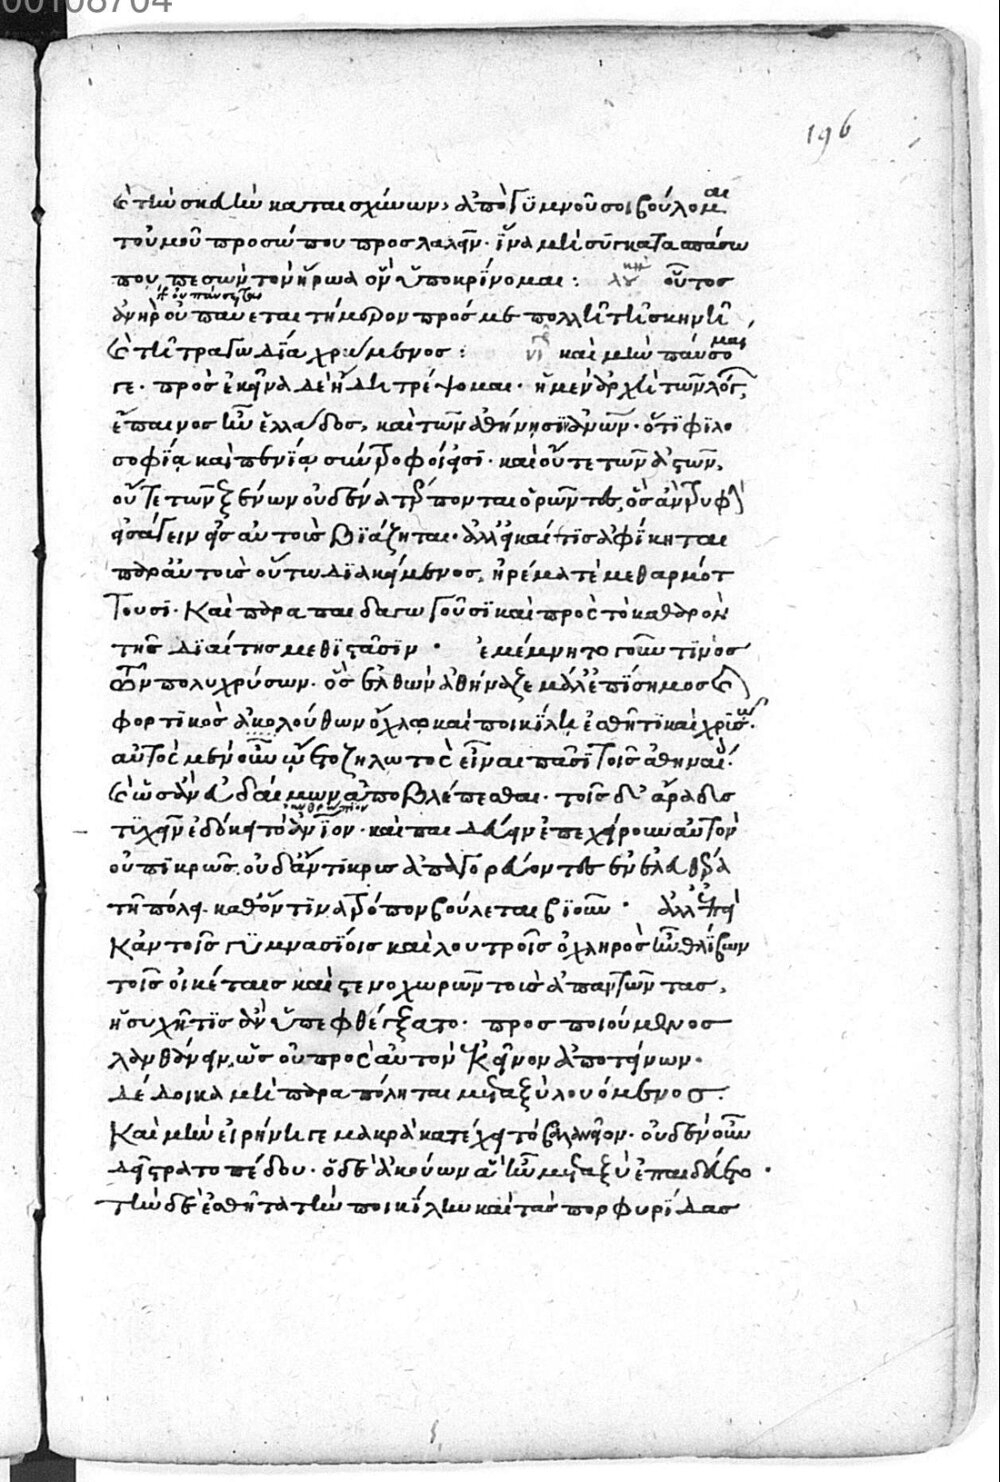 00108704
196
καὶ τὴν σκηνὴν καταισχύνων, ἀπὸ γυμνοῦ σοι βούλομαι
τοὐμοῦ προσώπου προσλαλεῖν. ἵνα μὴ συγκατασπάσω
που πεσὼν τὸν ἥρωα ὃν ὑποκρίνομαι: λουκ οὗτος
ἀνὴρ οὐ παύεται τήμερον πρός με πολλῇ τῇ σκηνῇ
καὶ τῇ τραγῳδίᾳ χρώμενος: νιγ καὶ μὴν παύσομαί
γε. πρὸς ἐκεῖνα δὲ ἤδη τρέψομαι. ἡ μὲν ἀρχὴ τῶν λόγων,
ἔπαινος ἦν ἑλλάδος, καὶ τῶν ἀθήνησιν ἀνθρώπων. ὅτι φιλο
σοφίᾳ καὶ πενίᾳ σύντροφοί εἰσι. καὶ οὔτε τῶν ἀστῶν,
οὔτε τῶν ξένων οὐδένα τέρπονται ὁρῶντες, ὃς ἂν τρυφὴν
εἰσάγειν εἰς αὐτοὺς βιάζηται. ἀλλὰ εἰ καί τις ἀφίκηται
παρ' αὐτοὺς οὕτω διακείμενος, ἠρέμα τὲ μεθαρμότ
τουσι. καὶ παραπαιδαγωγοῦσι καὶ πρὸς τὸ καθαρὸν
τῆς διαίτης μεθιστᾶσιν. ἐμέμνητο γοῦν τινὸς
τῶν πολυχρύσων. ὃς ἐλθὼν ἀθήναζε μάλ' ἐπίσημος καὶ
φορτικὸς ἀκολούθων ὄχλῳ καὶ ποικίλῃ ἐσθῆτι καὶ χρυσῷ.
αὐτὸς μὲν οὖν ᾤετο ζηλωτὸς εἶναι πᾶσι τοῖς ἀθηναίοις.
καὶ ὡς ἂν εὐδαίμων ἀποβλέπεσθαι. τοῖς δ' ἄρα δυσ
τυχεῖν ἐδόκει τὸ ἀνθρώπιον. καὶ παιδεύειν ἐπεχείρουν αὐτὸν
οὐ πικρῶς. οὐδ' ἄντικρυς ἀπαγορεύοντες ἐν ἐλευθέρᾳ
τῇ πόλει. καθ' ὅντινα τρόπον βούλεται βιοῦν. ἀλλ' ἐπεὶ
κἀν τοῖς γυμνασίοις καὶ λουτροῖς ὀχληρὸς ἦν θλίβων
τοῖς οἰκέταις καὶ στενοχωρῶν τοὺς ἀπαντῶντας,
ἡσυχῇ τις ἂν ὑπεφθέγξατο. προσποιούμενος
λανθάνειν, ὡς οὐ πρὸς αὐτὸν ἐκεῖνον ἀποτείνων.
δέδοικα μὴ παραπόληται μεταξὺ λουόμενος.
καὶ μὴν εἰρήνη γε μακρὰ κατέχει τὸ βαλανεῖον. οὐδὲν οὖν
δεῖ στρατοπέδου. ὁ δὲ ἀκούων ἃ ἦν μεταξὺ ἐπαιδεύετο.
τὴν δὲ ἐσθῆτα τὴν ποικίλην καὶ τὰς πορφυρίδας